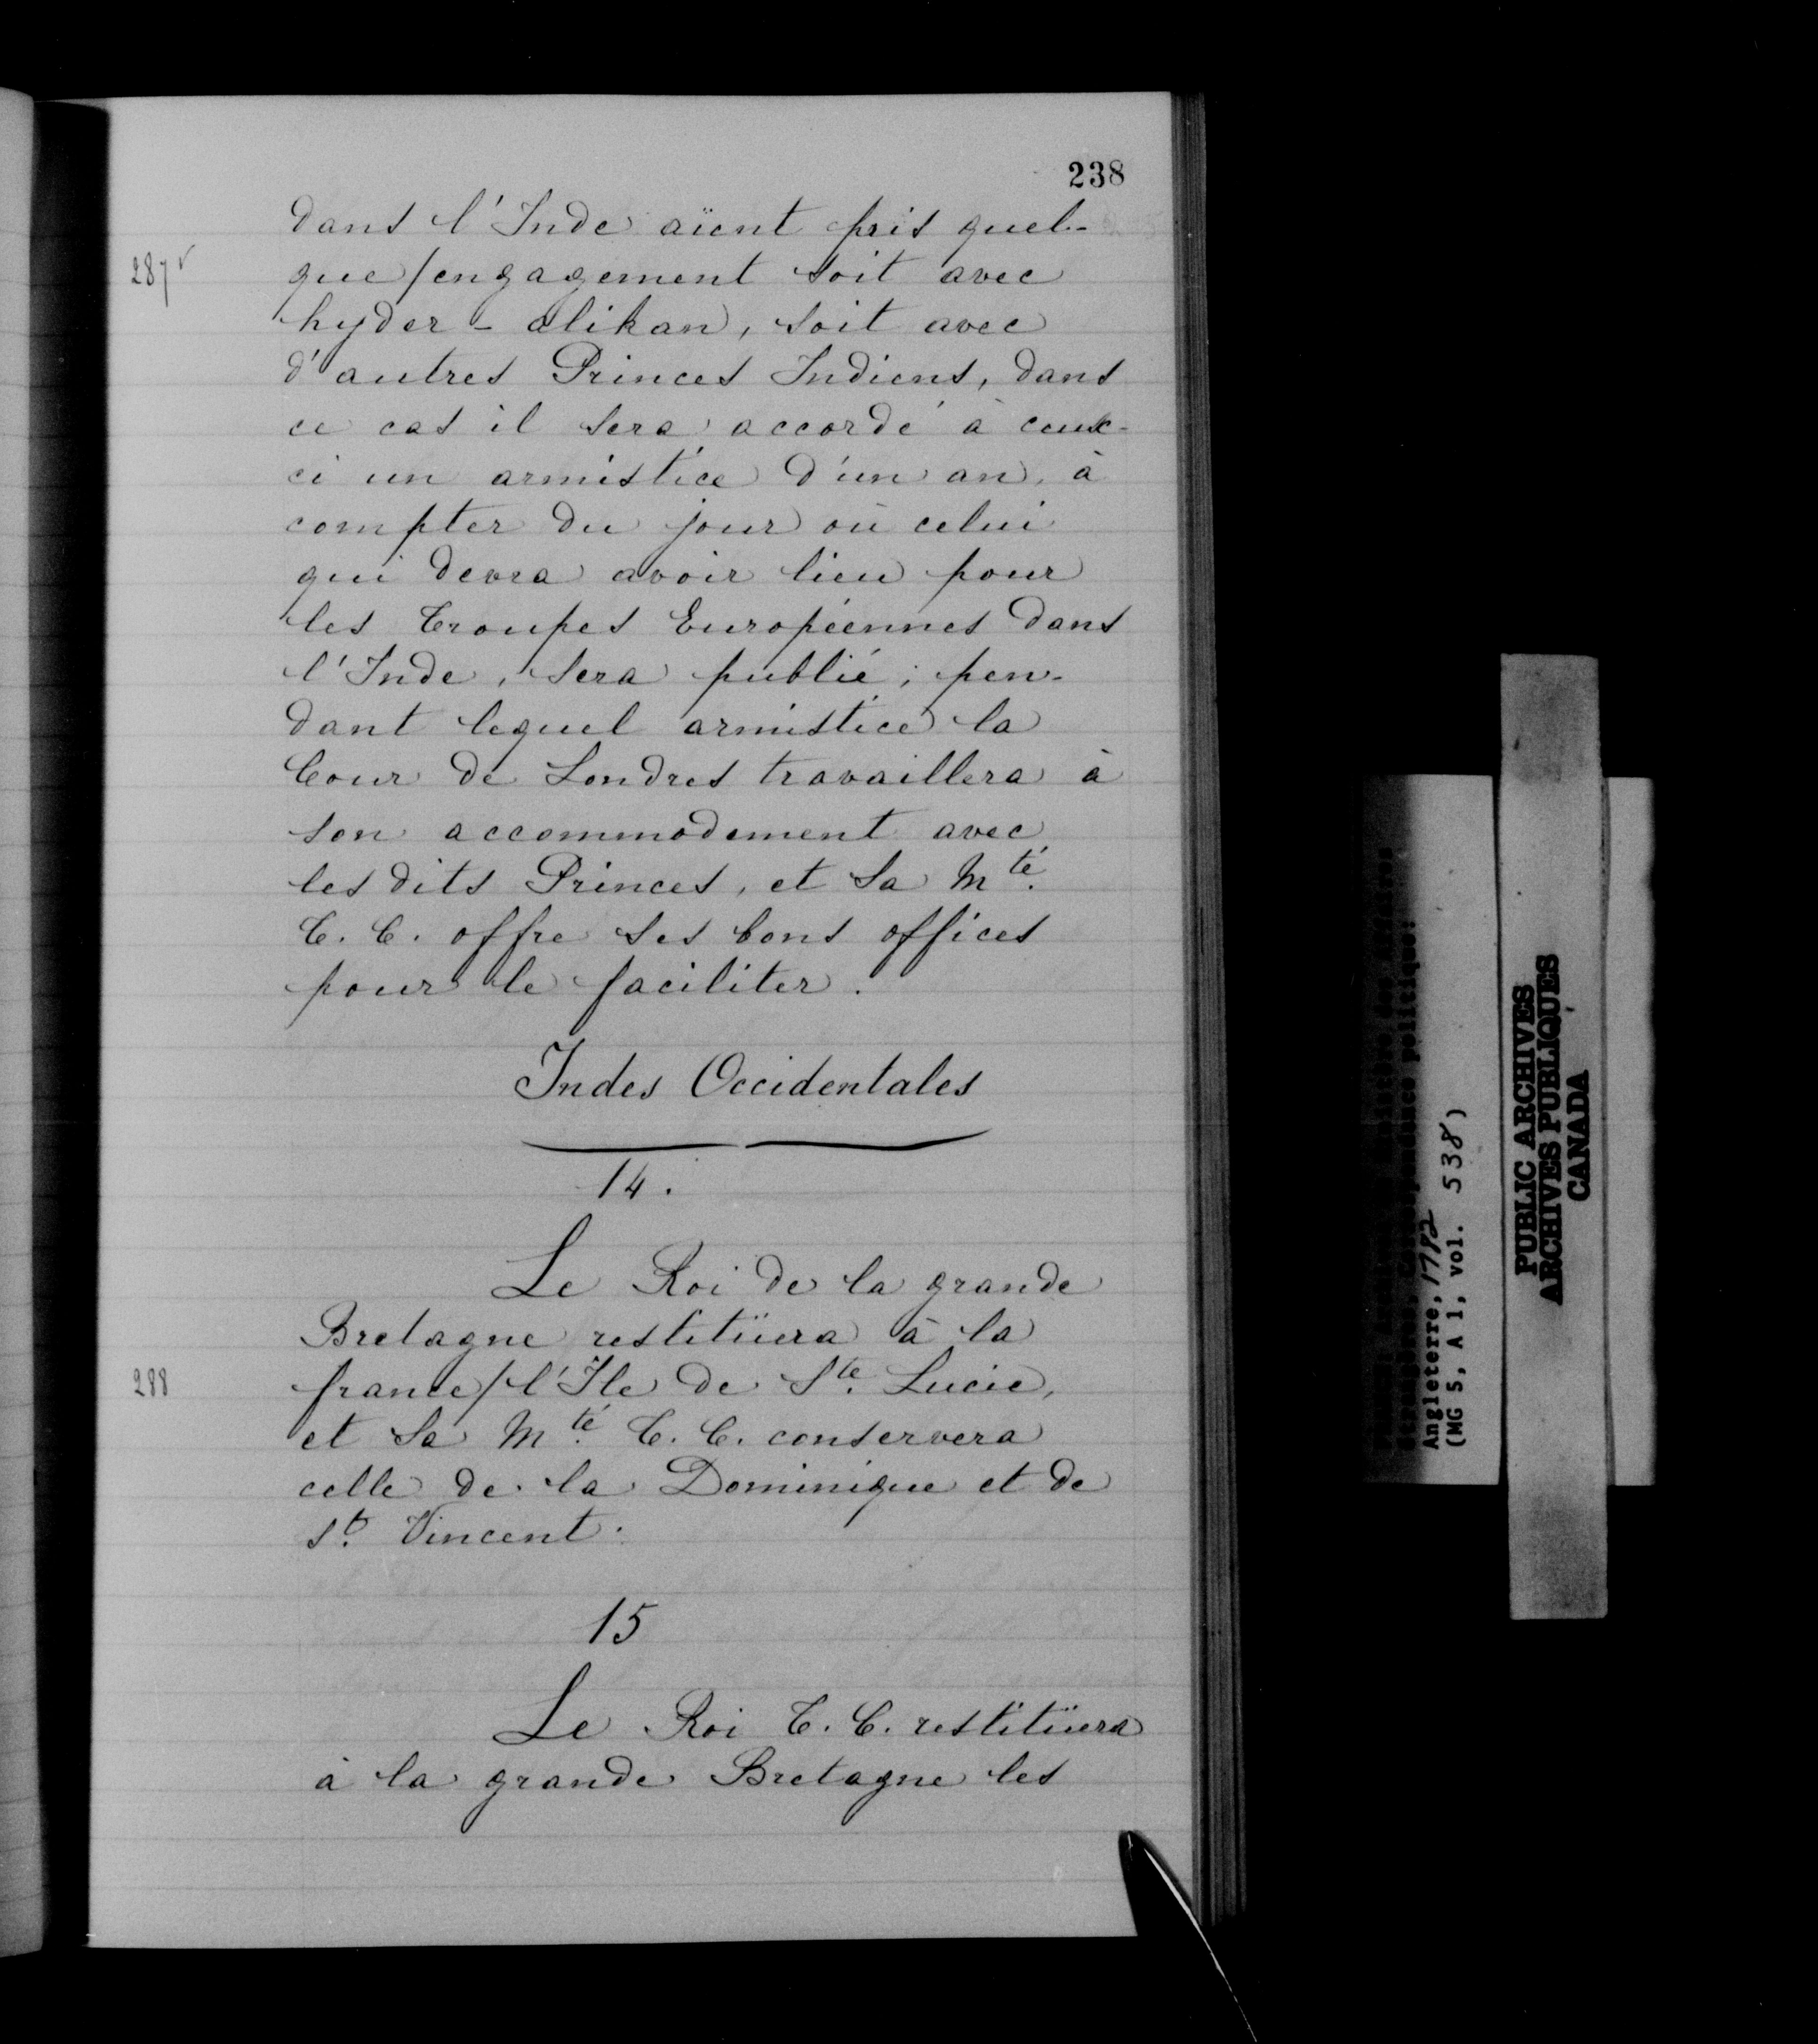 238
dans l'Inde aïent pris quel-
287v
que/engagement soit avec
hyder-alikan, soit avec
d'autres Princes Indiens, dans
ce cas il sera accordé à ceux-
ci un armistice d'un an, à
compter du jour où celui
qui devra avoir lieu pour
les Troupes Européennes dans
l'Inde, sera publié; pen-
dant lequel armistice la
Cour de Londres travaillera à
son accommodement avec
les dits Princes, et Sa Mté.
T. C. offre ses bons offices
pour le faciliter.
Indes Occidentales
14.
Le Roi de la grande
Bretagne restitüera à la
288
france/l'Ile de Ste. Lucie,
et Sa Mté. T. C. conservera
celle de la Dominique et de
St. Vincent.
15
Le Roi T. C. restitüera
à la grande Bretagne les
politique:
Angleterre, 1782
(MG 5, A 1, vol. 538)
PUBLIC ARCHIVES
ARCHIVES PUBLIQUES
CANADA